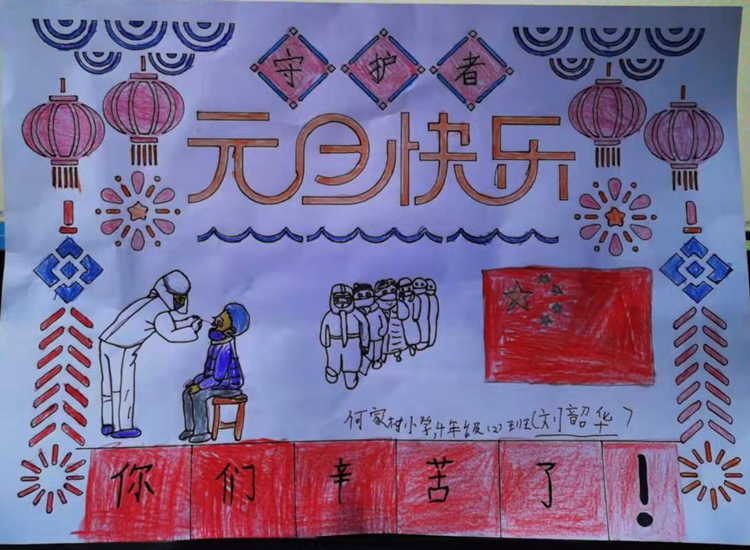 守护者
元旦快乐
何家村小学4年级(2)班(刘韶华)
你们辛苦了!